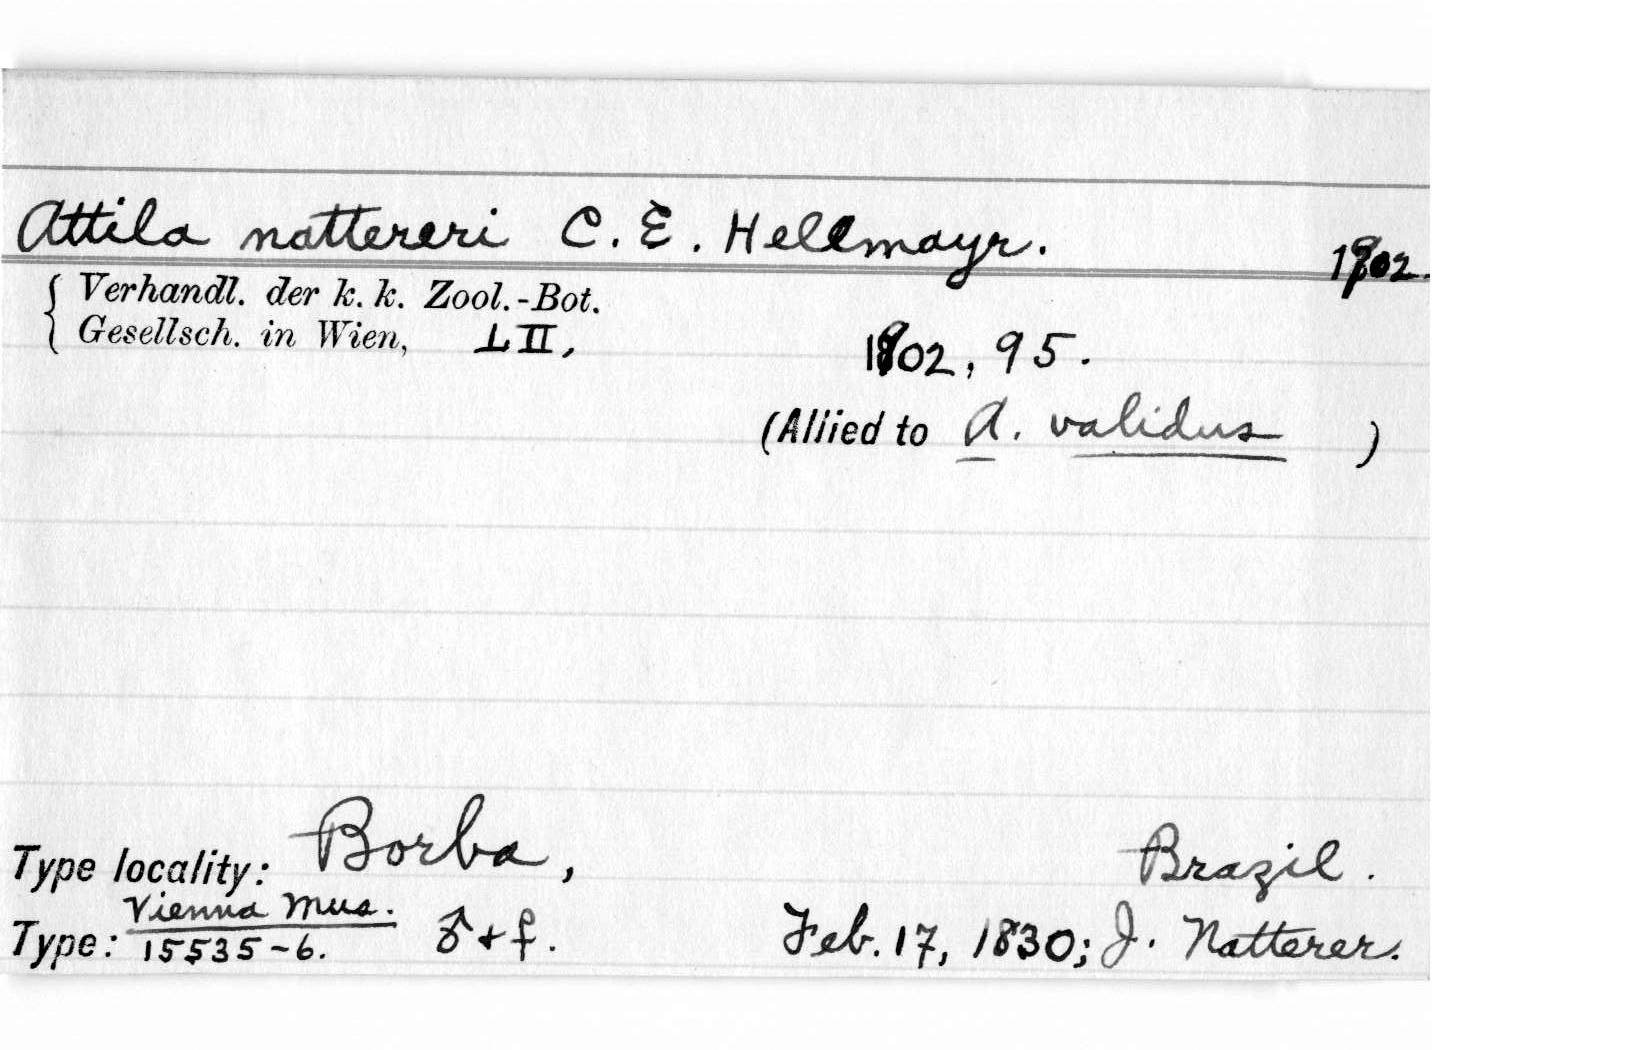 Attila nattereri C. E. Hellmayr. 1902.
Verhandl. der k. k. Zool.-Bot.
Gesellsch. in Wien, LII, 1902, 95.
(Allied to A. validus )
Type locality: Borba, Brazil.
Vienna Mus.
Type: 15535-6. ♂ + ♀. Feb. 17, 1830; J. Natterer.